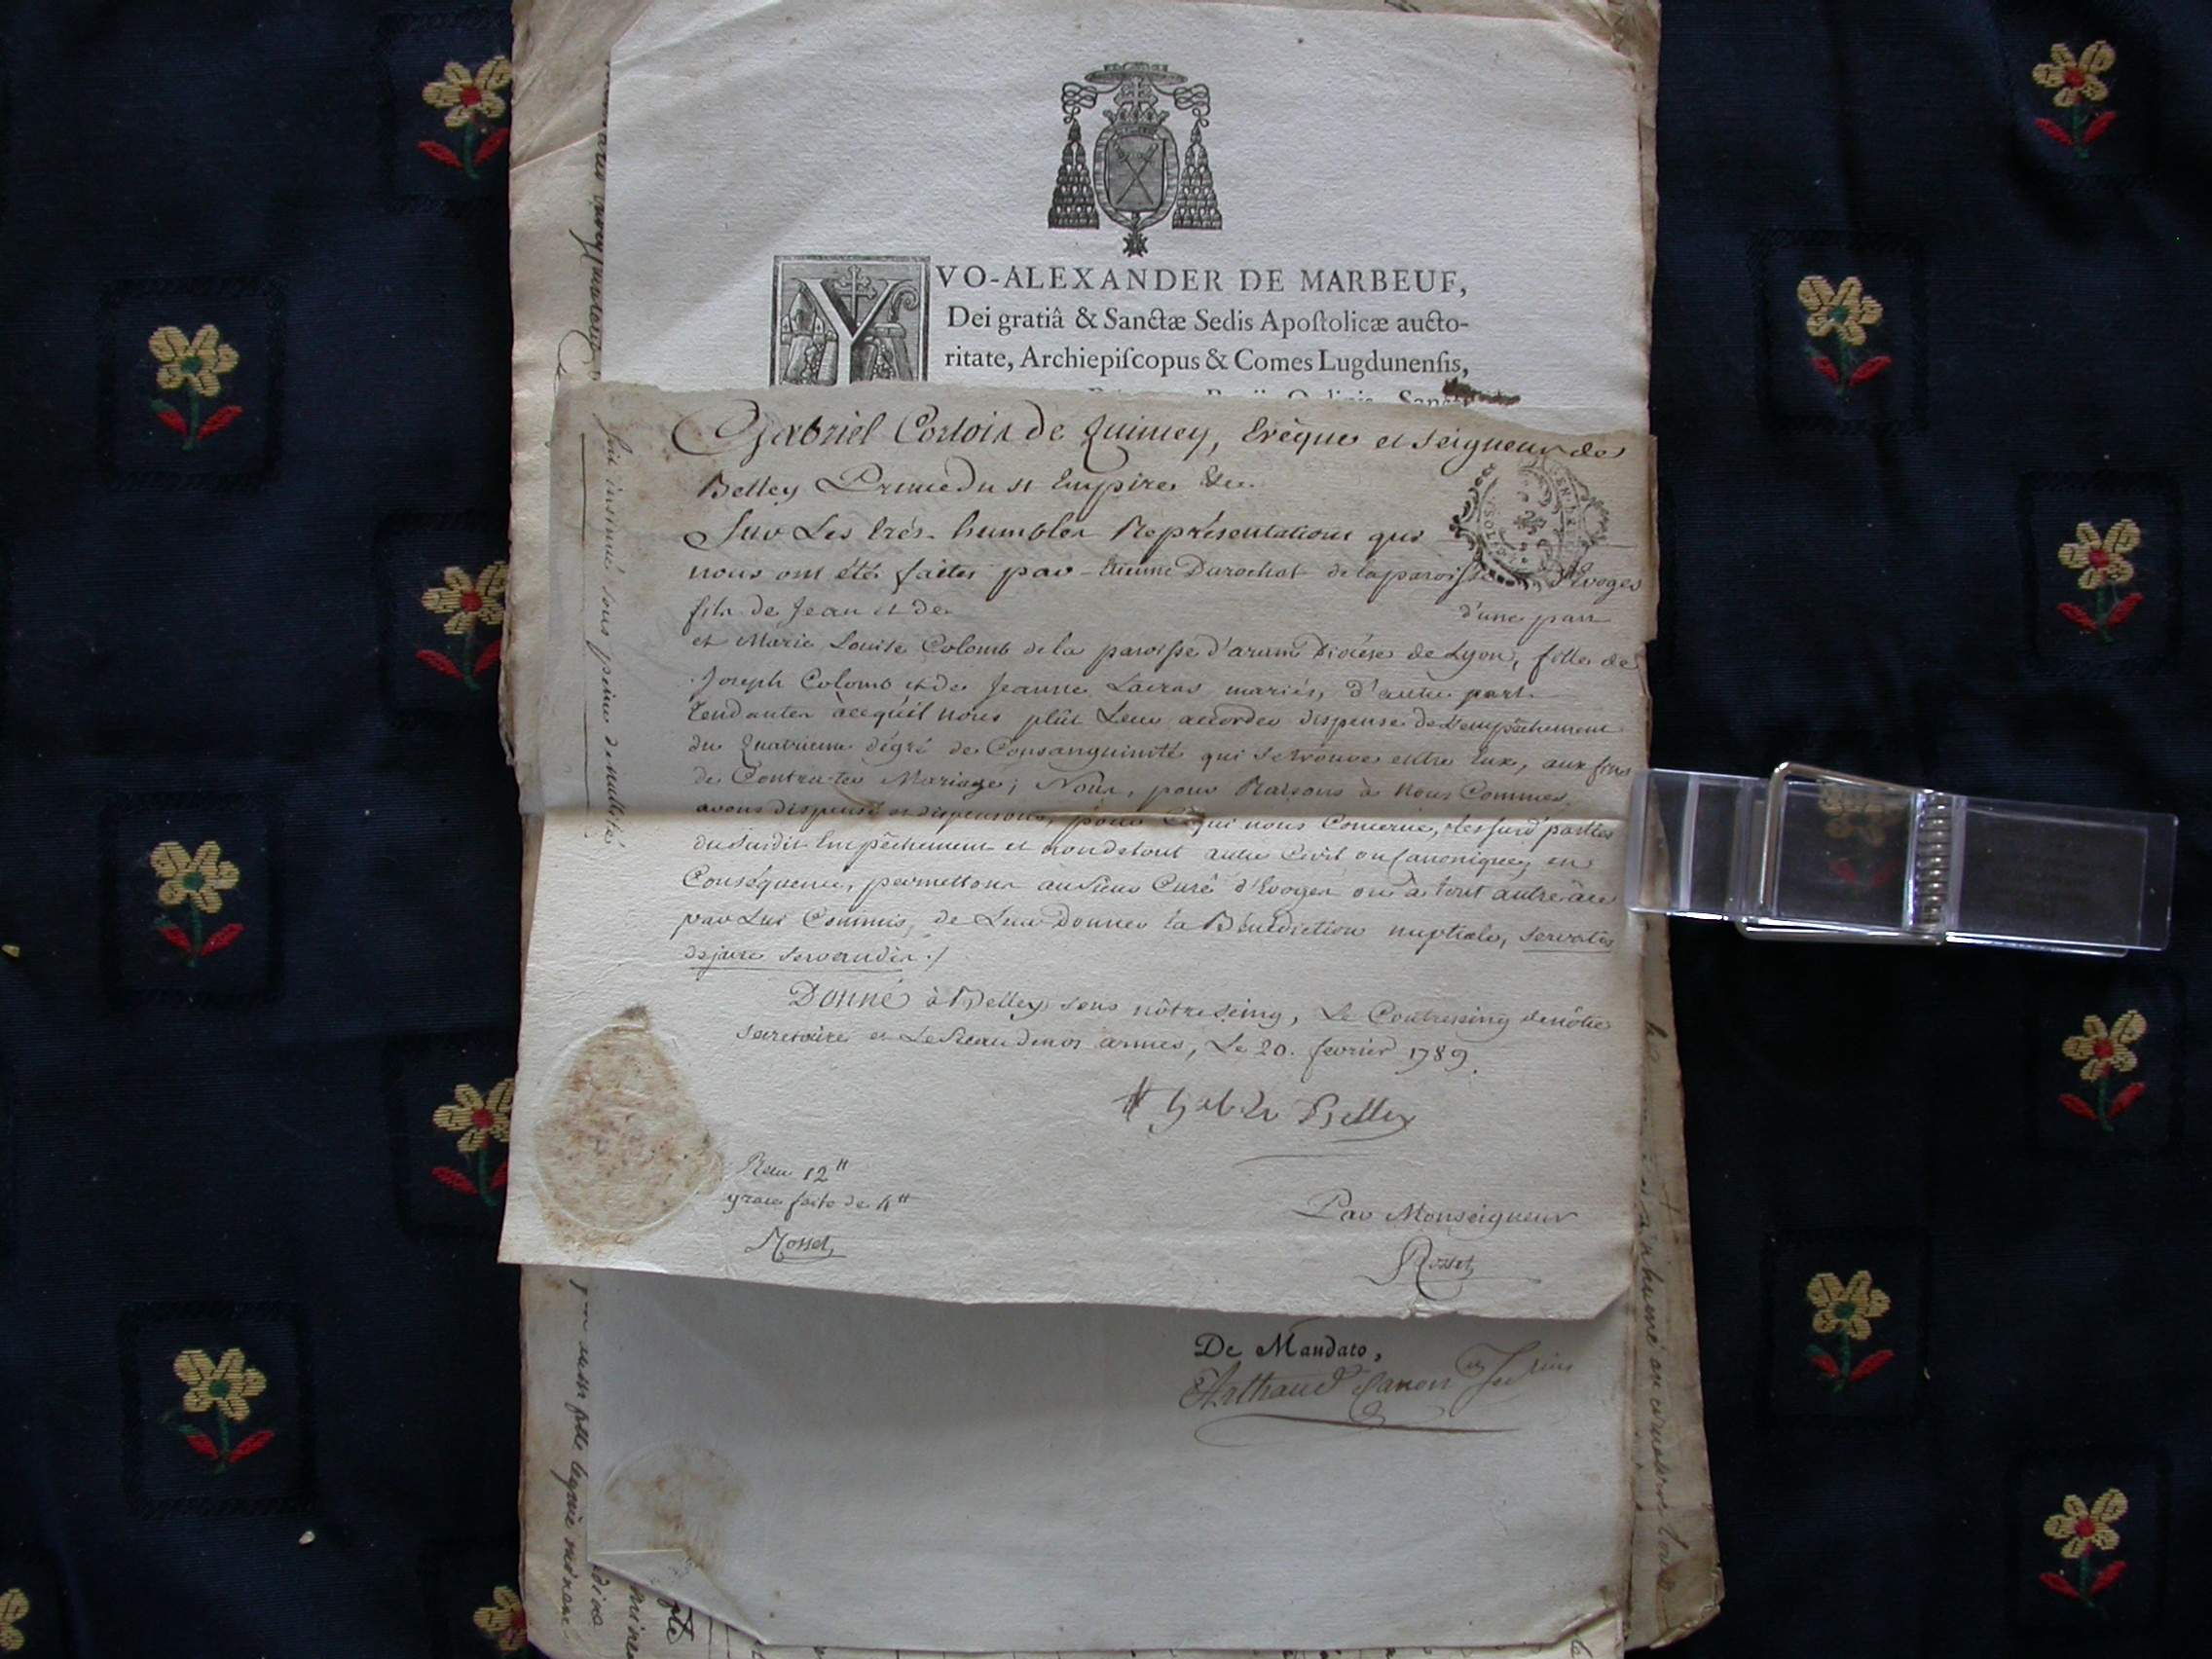 YVO-ALEXANDER DE MARBEUF,
Dei gratiâ & Sanctæ Sedis Apoſtolicæ aucto-
ritate, Archiepiſcopus & Comes Lugdunenſis,
Gabriel Cortois de Quincey, Evêque et Seigneur de
Belley Prince du St Empire &c.
Sur Les très-humbles Représentations que
nous ont été faites par Etienne Durochat de la paroisse d'Evoges
fils de Jean et de d'une part
et Marie Louise Colomb de la paroisse d'aranc Diocèse de Lyon, fille de
Joseph Colomb et de Jeanne Lacras mariés, d'autre part.
tendantes à ce qu'il nous plût Leur accorder dispense de L'empêchement
du Quatrieme dégré de Consanguinité qui se trouve entre Eux, aux fins
de Contracter Mariage; Nous, pour Raisons à Nous Connues
avons dispensé et dispensons, pour Ce qui nous Concerne, les susd. parties
du susdit Empêchement et non de tout autre Civil ou Canonique; en
Conséquence, permettons au Sieur Curé d'Evoges ou à tout autre
par Lui Commis, de Leur Donner la Bénédiction nuptiale, servatis
de jure servandis ./
Donné à Belley sous nôtre seing, Le Contreseing de nôtre
secretaire et Le Sceau de nos armes, Le 20. fevrier 1789.
Gab. Ev. de Belley
Reçu 12tt
grace faite de 4tt
Rosset
Par Monseigneur
Rosset
Soit insinué sous peine de Nullité
De Mandato,